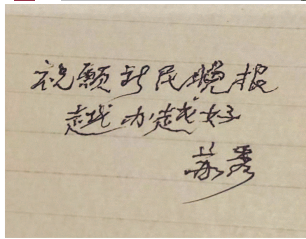 祝愿新民晚报
越办越好
苏秀